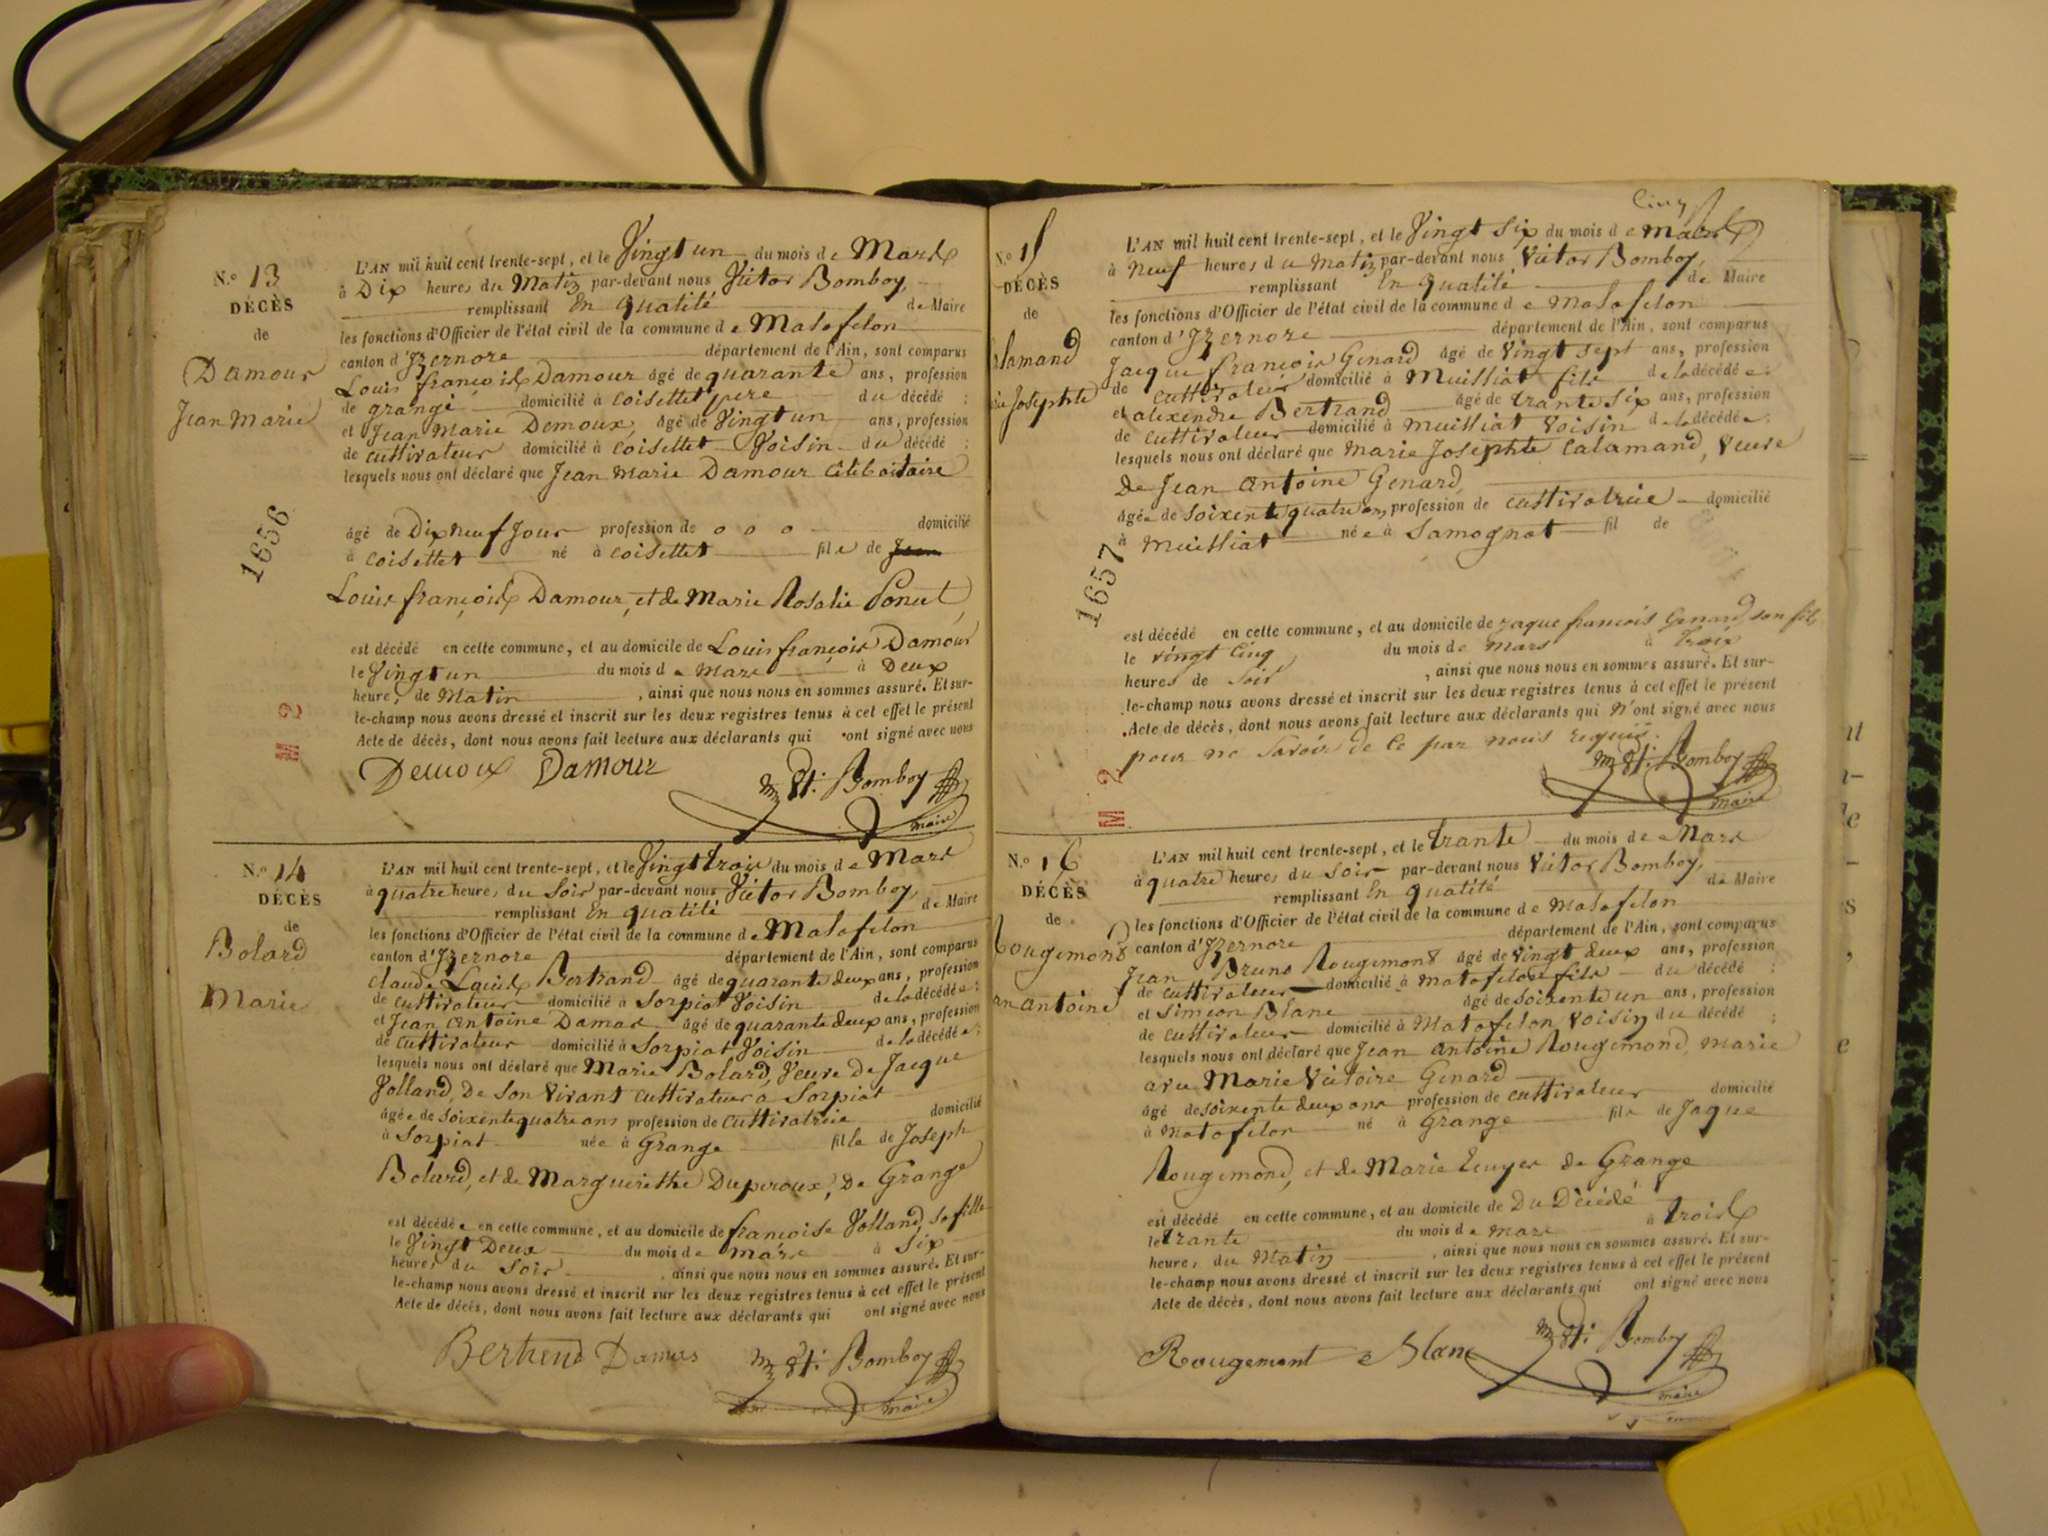 N.o 13
DÉCÈS
de
Damour
Jean Marie
L'AN mil huit cent trente-sept, et le Vingt un du mois de Mars
à Dix heures du Matin par-devant nous Victor Bomboy,
remplissant En qualité de Maire
les fonctions d'Officier de l'état civil de la commune de Matafelon
canton d'Izernore département de l'Ain, sont comparus
Louis françois Damour âgé de quarante ans, profession
de grangé domicilié à Coisettet pere du décédé ;
et Jean Marie Demoux, âgé de Vingt un ans, profession
de cuttivateur domicilié à Coisettet Voisin du décédé ;
lesquels nous ont déclaré que Jean Marie Damour Céliboitaire
âgé de Dix neuf Jour profession de o o o domicilié
à Coisettet né à Coisettet fils de
Louis françois Damour, et de Marie Rosalie Ponut
est décédé en cette commune, et au domicile de Louis françois Damour
le Vingt un du mois de Mars à Deux
heures de Matin, ainsi que nous nous en sommes assuré. Et sur-
le-champ nous avons dressé et inscrit sur les deux registres tenus à cet effet le présent
Acte de décès, dont nous avons fait lecture aux déclarants qui ont signé avec nous
Demoux Damour Bomboy
maire
1656
M 2
N.o 14
DÉCÈS
de
Bolard
Marie
L'AN mil huit cent trente-sept, et le Vingt trois du mois de Mars
à quatre heures du Soir par-devant nous Victor Bomboy,
remplissant En qualité de Maire
les fonctions d'Officier de l'état civil de la commune de Matafelon
canton d'Izernore département de l'Ain, sont comparus
Claude Louis Bertrand âgé de quarante deux ans, profession
de cuttivateur domicilié à Sorpiat Voisin de la décédée ;
et Jean Antoine Damas âgé de quarante deux ans, profession
de cuttivateur domicilié à Sorpiat Voisin de la décédée ;
lesquels nous ont déclaré que Marie Bolard, Veuve De Jacque
Volland, De Son Vivant cuttivateur a Sorpiat
âgée de soixente quatre ans profession de cuttivatrice domicilié
à Sorpiat née à Grange fille de Joseph
Bolard, et de Marguirithe Duproux, De Grange
est décédée en cette commune, et au domicile de françoise Volland, sa fille
le Vingt Deux du mois de mars à Six
heures du Soir, ainsi que nous nous en sommes assuré. Et sur-
le-champ nous avons dressé et inscrit sur les deux registres tenus à cet effet le présent
Acte de décès, dont nous avons fait lecture aux déclarants qui ont signé avec nous
Bertrend Damas Bomboy
maire
Cinq
N.o 15
DÉCÈS
de
alamand
ie Josephte
L'AN mil huit cent trente-sept, et le Vingt six du mois de mars
à neuf heures du matin par-devant nous Victor Bomboy,
remplissant En qualité de Maire
les fonctions d'Officier de l'état civil de la commune de Matafelon
canton d'Izernore département de l'Ain, sont comparus
Jacque françois Genard âgé de Vingt sept ans, profession
de cuttivateur domicilié à Muilliat fils de la décédée ;
et alexendre Bertrand âgé de trante six ans, profession
de cuttivateur domicilié à Muilliat Voisin de la décédée ;
lesquels nous ont déclaré que Marie Josephte Calamand, Veuve
De Jean Antoine Genard
âgée de soixente quatre ans profession de cuttivatrice domicilié
à Muilliat née à Samognat fil de
est décédé en cette commune, et au domicile de zaque francois Genard son fils
le vingt Cinq du mois de mars à trois
heures de Soir, ainsi que nous nous en sommes assuré. Et sur-
le-champ nous avons dressé et inscrit sur les deux registres tenus à cet effet le présent
Acte de décès, dont nous avons fait lecture aux déclarants qui n'ont signé avec nous
pour ne Savoir de Ce par nous requis.
Bomboy
maire
1657
M 2
N.o 16
DÉCÈS
de
Rougemond
an antoine
L'AN mil huit cent trente-sept, et le trante du mois de Mars
à quatre heures du Soir par-devant nous Victor Bomboy,
remplissant En qualité de Maire
les fonctions d'Officier de l'état civil de la commune de Matafelon
canton d'Izernore département de l'Ain, sont comparus
Jean Bruno Rougemond âgé de Vingt deux ans, profession
de cuttivateur domicilié à Matafelon fils du décédé ;
et Simeon Blanc âgé de soixente un ans, profession
de cuttivateur domicilié à Matafelon Voisin du décédé ;
lesquels nous ont déclaré que Jean Antoine Rougemond, Marie
avec Marie Victoire Genard
âgé de soixente deux ans profession de cuttivateur domicilié
à Matafelon né à Grange fils de Jaque
Rougemond, et de Marie Ecuyer de Grange
est décédé en cette commune, et au domicile de Du Décédé
le trante du mois de mars à trois
heures du Matin, ainsi que nous nous en sommes assuré. Et sur-
le-champ nous avons dressé et inscrit sur les deux registres tenus à cet effet le présent
Acte de décès, dont nous avons fait lecture aux déclarants qui ont signé avec nous
Rougemont Blanc Bomboy
maire